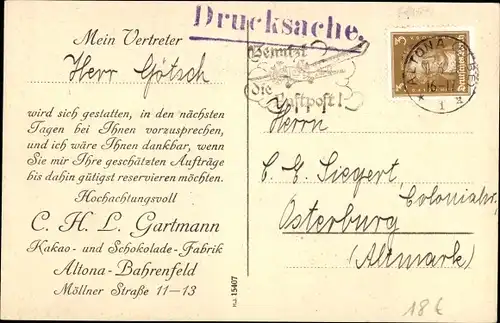 Drucksache.
Mein Vertreter
Herr Götsch
wird sich gestatten, in den nächsten
Tagen bei Ihnen vorzusprechen,
und ich wäre Ihnen dankbar, wenn
Sie mir Ihre geschätzten Aufträge
bis dahin gütigst reservieren möchten.
Hochachtungsvoll
C. H. L. Gartmann
Kakao- und Schokolade-Fabrik
Altona-Bahrenfeld
Möllner Straße 11—13
HJ. 15407
Benutzt
die
Luftpost!
3
3
Deutsches Reich
ALTONA (ELBE)
1
Herrn
C. E. Siegert,
Colonialw.
Osterburg
(Altmark)
18€